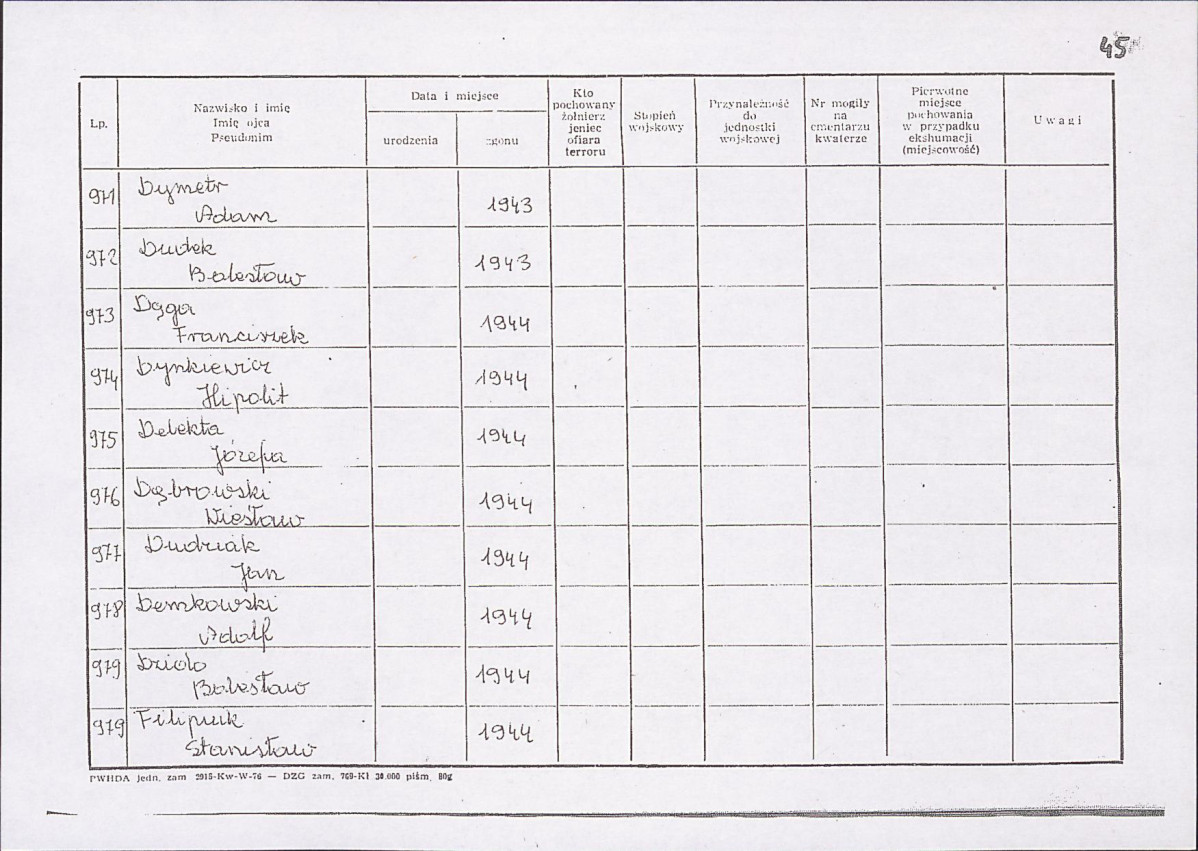 45
Lp.
Nazwisko i imię
Imię ojca
Pseudonim
Data i miejsce
urodzenia
zgonu
Kto
pochowany
żołnierz
jeniec
ofiara
terroru
Stopień
wojskowy
Przynależność
do
jednostki
wojskowej
Nr mogiły
na
cmentarzu
kwaterze
Pierwotne
miejsce
pochowania
w przypadku
ekshumacji
(miejscowość)
Uwagi
971 Dymetr
Adam 1943
972 Dudek
Bolesław 1943
973 Dęga
Franciszek 1944
974 Dynkiewicz
Hipolit 1944
975 Delekta
Józefa 1944
976 Dąbrowski
Wiesław 1944
977 Dudziak
Jan 1944
978 Demkowski
Adolf 1944
979 Dzioło
Bolesław 1944
979 Filipiuk
Stanisław 1944
PWHDA jedn. zam 2915-Kw-W-76 — DZG zam. 769-K1 30.000 piśm. 80g